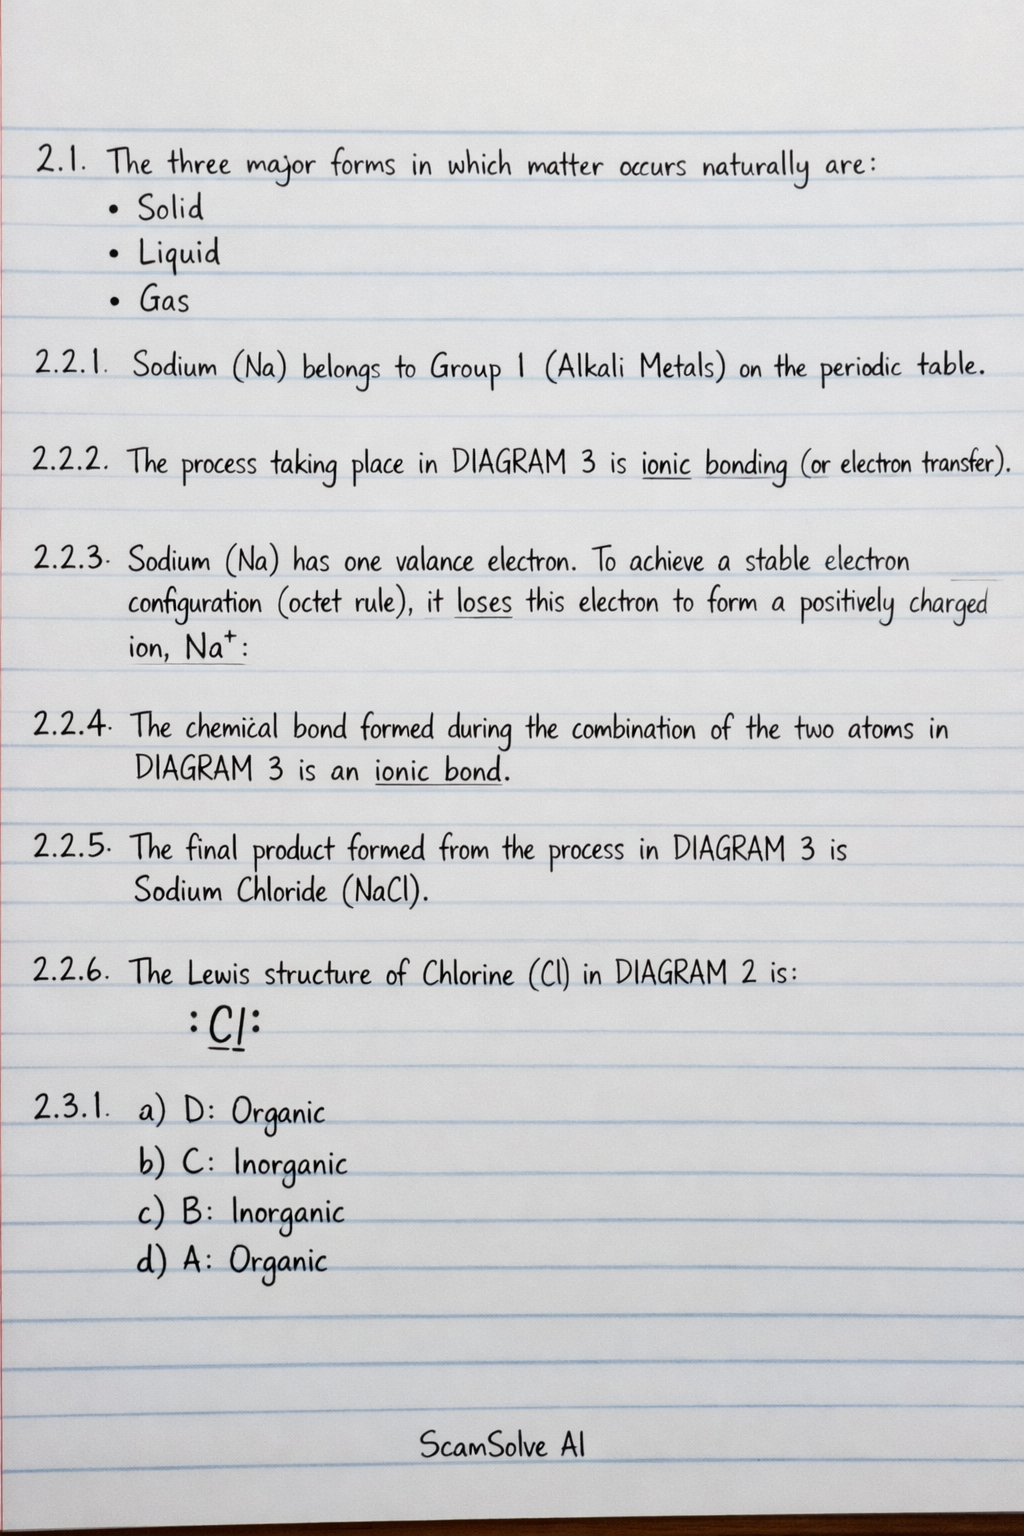 2.1. The three major forms in which matter occurs naturally are:
• Solid
• Liquid
• Gas
2.2.1. Sodium (Na) belongs to Group 1 (Alkali Metals) on the periodic table.
2.2.2. The process taking place in DIAGRAM 3 is ionic bonding (or electron transfer).
2.2.3. Sodium (Na) has one valance electron. To achieve a stable electron
configuration (octet rule), it loses this electron to form a positively charged
ion, Na⁺:
2.2.4. The chemical bond formed during the combination of the two atoms in
DIAGRAM 3 is an ionic bond.
2.2.5. The final product formed from the process in DIAGRAM 3 is
Sodium Chloride (NaCl).
2.2.6. The Lewis structure of Chlorine (Cl) in DIAGRAM 2 is:
:Cl:
2.3.1. a) D: Organic
b) C: Inorganic
c) B: Inorganic
d) A: Organic
ScamSolve AI